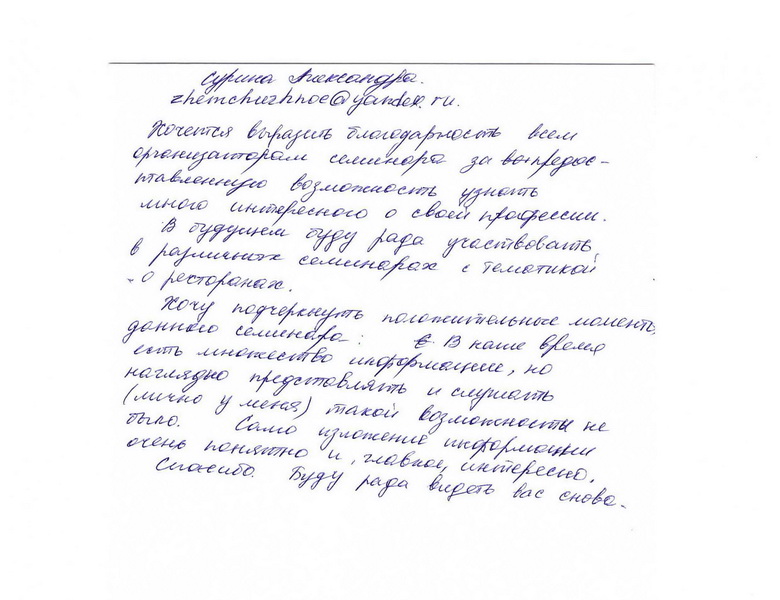 Сурина Александра.
zhemchuzhnoe@yandex.ru.
Хочется выразить благодарность всем
организаторам семинара за предос-
тавленную возможность узнать
много интересного о своей профессии.
В будущем буду рада участвовать
в различных семинарах с тематикой
о ресторанах.
Хочу подчеркнуть положительные моменты
данного семинара: В наше время
есть множество информации, но
наглядно представлять и слушать
(лично у меня) такой возможности не
было. Само изложение информации
очень понятно и, главное, интересно.
Спасибо. Буду рада видеть вас снова.